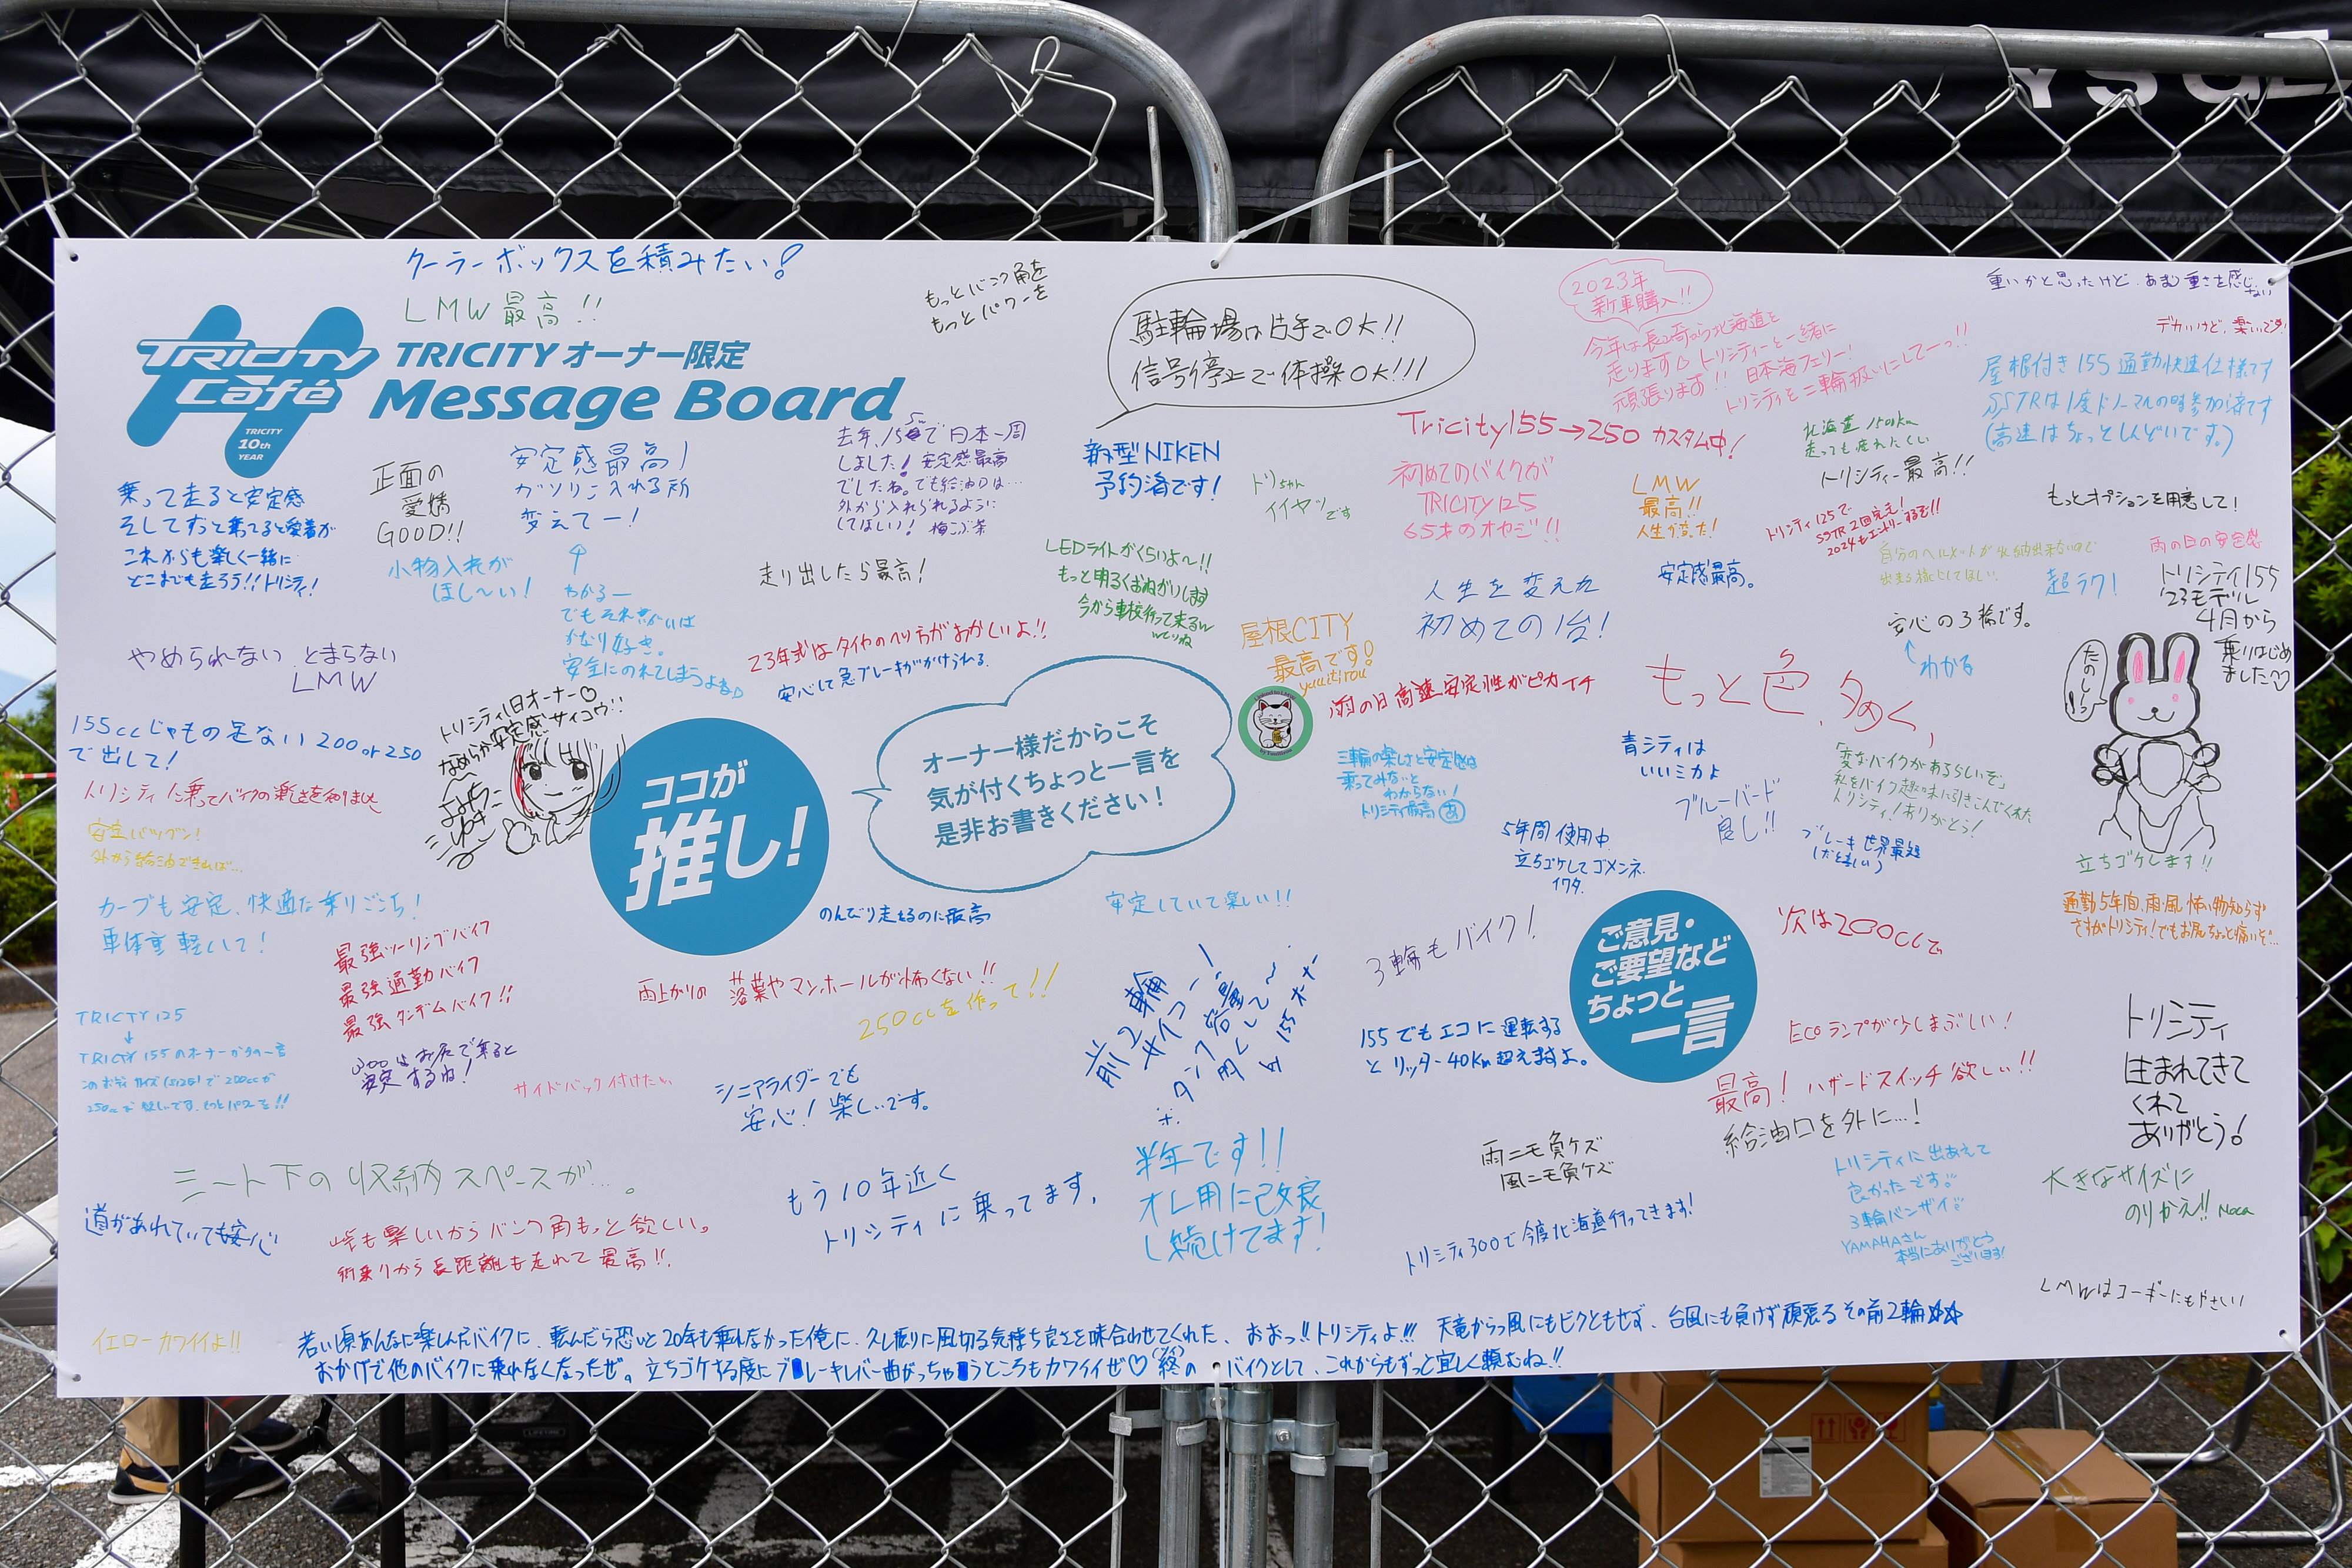 YSGE
クーラーボックスを積みたい!
LMW最高!!
TRICITY
Café
TRICITY
10th
YEAR
TRICITY オーナー限定
Message Board
もっとバンク角を
もっとパワーを
駐輪場は片手でOK!!
信号停止で体操OK!!!
2023年
新車購入!!
今年は長崎から北海道を
走ります トリシティーと一緒に
頑張ります!! 日本海フェリー!
トリシティを二輪扱いにしてーっ!!
重いかと思ったけど、あまり重さを感じない
デカいけど、楽いです!
屋根付き155通勤快速仕様です
SSTRは1度ドノーマルの時参加済です
(高速はちょっとしんどいです。)
乗って走ると安定感
そしてずっと乗ってると愛着が
これからも楽しく一緒に
どこまでも走ろう!!トリシティ!
正面の
愛嬌
GOOD!!
安定感最高!
ガソリン入れる所
変えてー!
↑
わかるー
でもそれ以外は
かなり好き。
安全にのれてしまうよね♪
小物入れが
ほし〜い!
去年、155で日本一周
しました!安定感最高
でしたね。でも給油口は…
外から入れられるように
してほしい! 梅こぶ茶
新型NIKEN
予約済です!
トリちゃん
イイヤツです
Tricity155→250 カスタム中!
初めてのバイクが
TRICITY125
65才のオヤジ!!
LMW
最高!!
人生が変った!
北海道 1500km
走っても疲れにくい
トリシティー最高!!
もっとオプションを用意して!
トリシティ125で
SSTR2回完走!
2024もエントリーするぞ!!
自分のヘルメットが収納出来ないので
出来る様にしてほしい。
雨の日の安定感
超ラク!
トリシティ155
'23モデル
4月から
乗りはじめ
ました♡
たのしいっ
走り出したら最高!
LEDライトがくらいよ〜!!
もっと明るくおねがいします
今から車検行って来るw
人生を変えた
初めての1台!
安定感最高。
安心の3輪です。
↑わかる
やめられない とまらない
LMW
23年式はタイヤのヘリ方がおかしいよ!!
安心して急ブレーキがかけられる。
屋根CITY
最高です!
yuuitirou
雨の日 高速、安定性がピカイチ
もっと色、多めく、
155ccじゃもの足ない200or250
で出して!
トリシティに乗ってバイクの楽しさを知りました
トリシティ1日オーナー♡
なめらか安定感サイコウ!!
ココが
推し!
オーナー様だからこそ
気が付くちょっと一言を
是非お書きください!
三輪の楽しさと安定感は
乗ってみないと
わからない!
トリシティ最高 あ
青シティは
いいミカよ
ブルーバード
良し!!
「変なバイクがあるらしいぞ」
私をバイク趣味に引きこんでくれた
トリシティ!ありがとう!
安定バツグン!
外から給油できれば…
5年間使用中
立ちゴケしてゴメンネ.
イワタ.
ブレーキ世界最強
立ちゴケします!!
カーブも安定、快適な乗りごこち!
車体重軽して!
のんびり走るのに最高
安定していて楽しい!!
通勤5年間、雨・風 怖い物知らず
ですがトリシティ!でもお尻ちょっと痛いぞ…
最強ツーリングバイク
最強通勤バイク
最強タンデムバイク!!
雨上がりの 落葉やマンホールが怖くない!!
250ccを作って!!
3輪もバイク!
ご意見・
ご要望など
ちょっと
一言
次は200ccで
前2輪
サイコー!
※タンク容量
増やして〜
by 155オーナー
155でもエコに運転する
とリッター40Km超えますよ。
ECOランプが少しまぶしい!
TRICITY125
↓
TRICITY155のオーナーからの一言
このボディサイズ(SIZE)で200ccか
250ccが欲しいです。もっとパワーを!!
300はお尻で乗ると
安定するね!
サイドバック付けたい
シニアライダーでも
安心!楽しいです。
最高!ハザードスイッチ欲しい!!
給油口を外に…!
トリシティ
生まれてきて
くれて
ありがとう!
シート下の収納スペースが…。
もう10年近く
トリシティに乗ってます。
半年です!!
オレ用に改良
し続けてます!
雨ニモ負ケズ
風ニモ負ケズ
トリシティに出あえて
良かったです!!
3輪バンザイ!!
YAMAHAさん
本当にありがとう
ございます!
大きなサイズに
のりかえ!! Moca
道があれていても安心
峠も楽しいからバンク角もっと欲しい。
街乗りから長距離も走れて最高!!
トリシティ300で今度北海道行ってきます!
LMWはコーギーにもやさしい!
イエローカワイイよ!!
若い頃あんなに楽しんだバイクに、転んだら恐いと20年も乗れなかった俺に、久し振りに風切る気持ち良さを味合わせてくれた、おおっ!!トリシティよ!!! 天竜からっ風にもビクともせず、台風にも負けず頑張るその前2輪☆☆
おかげで他のバイクに乗れなくなったぜ。立ちゴケする度にブレーキレバー曲がっちゃうところもカワイイぜ♡終のバイクとして、これからもずっと宜しく頼むね!!